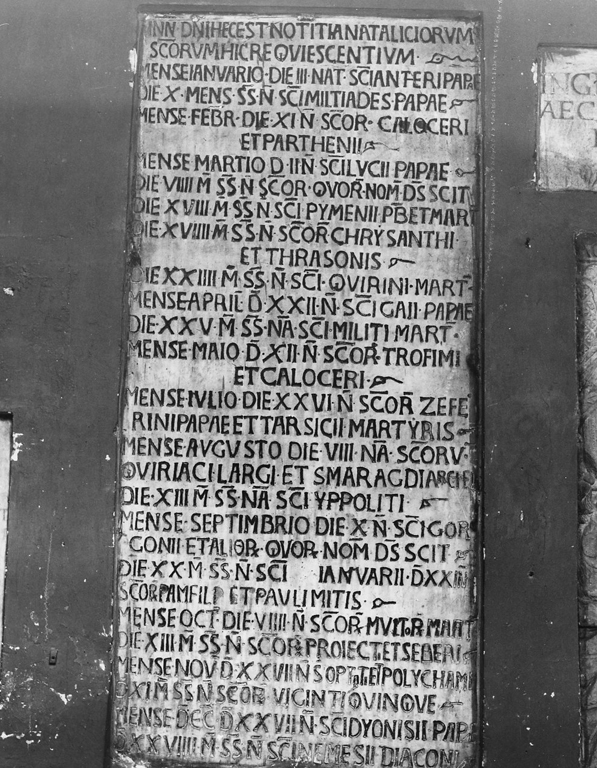 INN·DNI HEC EST NOTITIA NATALICIORVM
SCORVM HIC REQVIESCENTIVM·
MENSE IANVARIO·DIE III·NAT·SCI ANTERI PAPE
DIE·X·MENS·S̄S·N̄·SC̄I MILTIADES·PAPAE
MENSE·FEBR̄·DIE·XI N̄·SC̄OR·CALOCERI
ET PARTHENII
MENSE MARTIO D̄·II N̄·SCI LVCII PAPAE
DIE VIIII M̄·S̄S·N̄·SC̄OR·QVOR̄·NOM·D̄S SCIT
DIE XVIII·M̄·S̄S·N̄·SC̄I PYMENII·PB̄ ET MART
DIE·XVIIII·M̄·S̄S·N̄·SC̄OR̄ CHRYSANTHI·
ET THRASONIS
DIE XXIIII·M̄·S̄S·N̄·SC̄I·QVIRINI·MART̄·
MENSE APRIL·D̄·XXII·N̄·SC̄I GAII·PAPAE
DIE·XXV·M̄·S̄S·NĀ·SC̄I·MILITI MART̄·
MENSE·MAIO·D̄·XII·N̄·SC̄OR̄·TROFIMI
ET CALOCERI·
MENSE IVLIO·DIE·XXVI·N̄·SC̄OR̄ ZEFE
RINI PAPAE ET TARSICII MARTYRIS
MENSE·AVGVSTO DIE·VIII·NĀ·SCORV·
QVIRIACI LARGI·ET SMARAGDI ARCHE
DIE·XIII M̄·S̄S·NĀ·SC̄I YPPOLITI·
MENSE·SEPTIMBRIO DIE·X N̄·SC̄I GOR
GONII ET ALIOR̄·QVOR̄·NOM̄ D̄S SCIT
DIE·XX·M̄·S̄S·N̄·SC̄I IANVARII·D̄ XXIII
SC̄OR PAMFILI ET PAVLI MITIS·
MENSE OCT̄·DIE·VIIII·N̄·SC̄OR̄ MVLTOR̄ MART
DIE·XIII M̄·S̄S·N̄·SC̄OR̄ PROIECT·ET SEBERI
MENSE NOV D̄·XXVII N̄ S OPTATI ET POLYCHAMI
D̄ XI M̄ S̄S N̄ SC̄OR VIGINTI QVINQVE
MENSE·DEC̄ D̄ XXVII N̄·SCI DYONISII·PAP
D̄ XXVIIII M̄·S̄S·N̄ SCI NEMESII DIACONI
ING
AEC